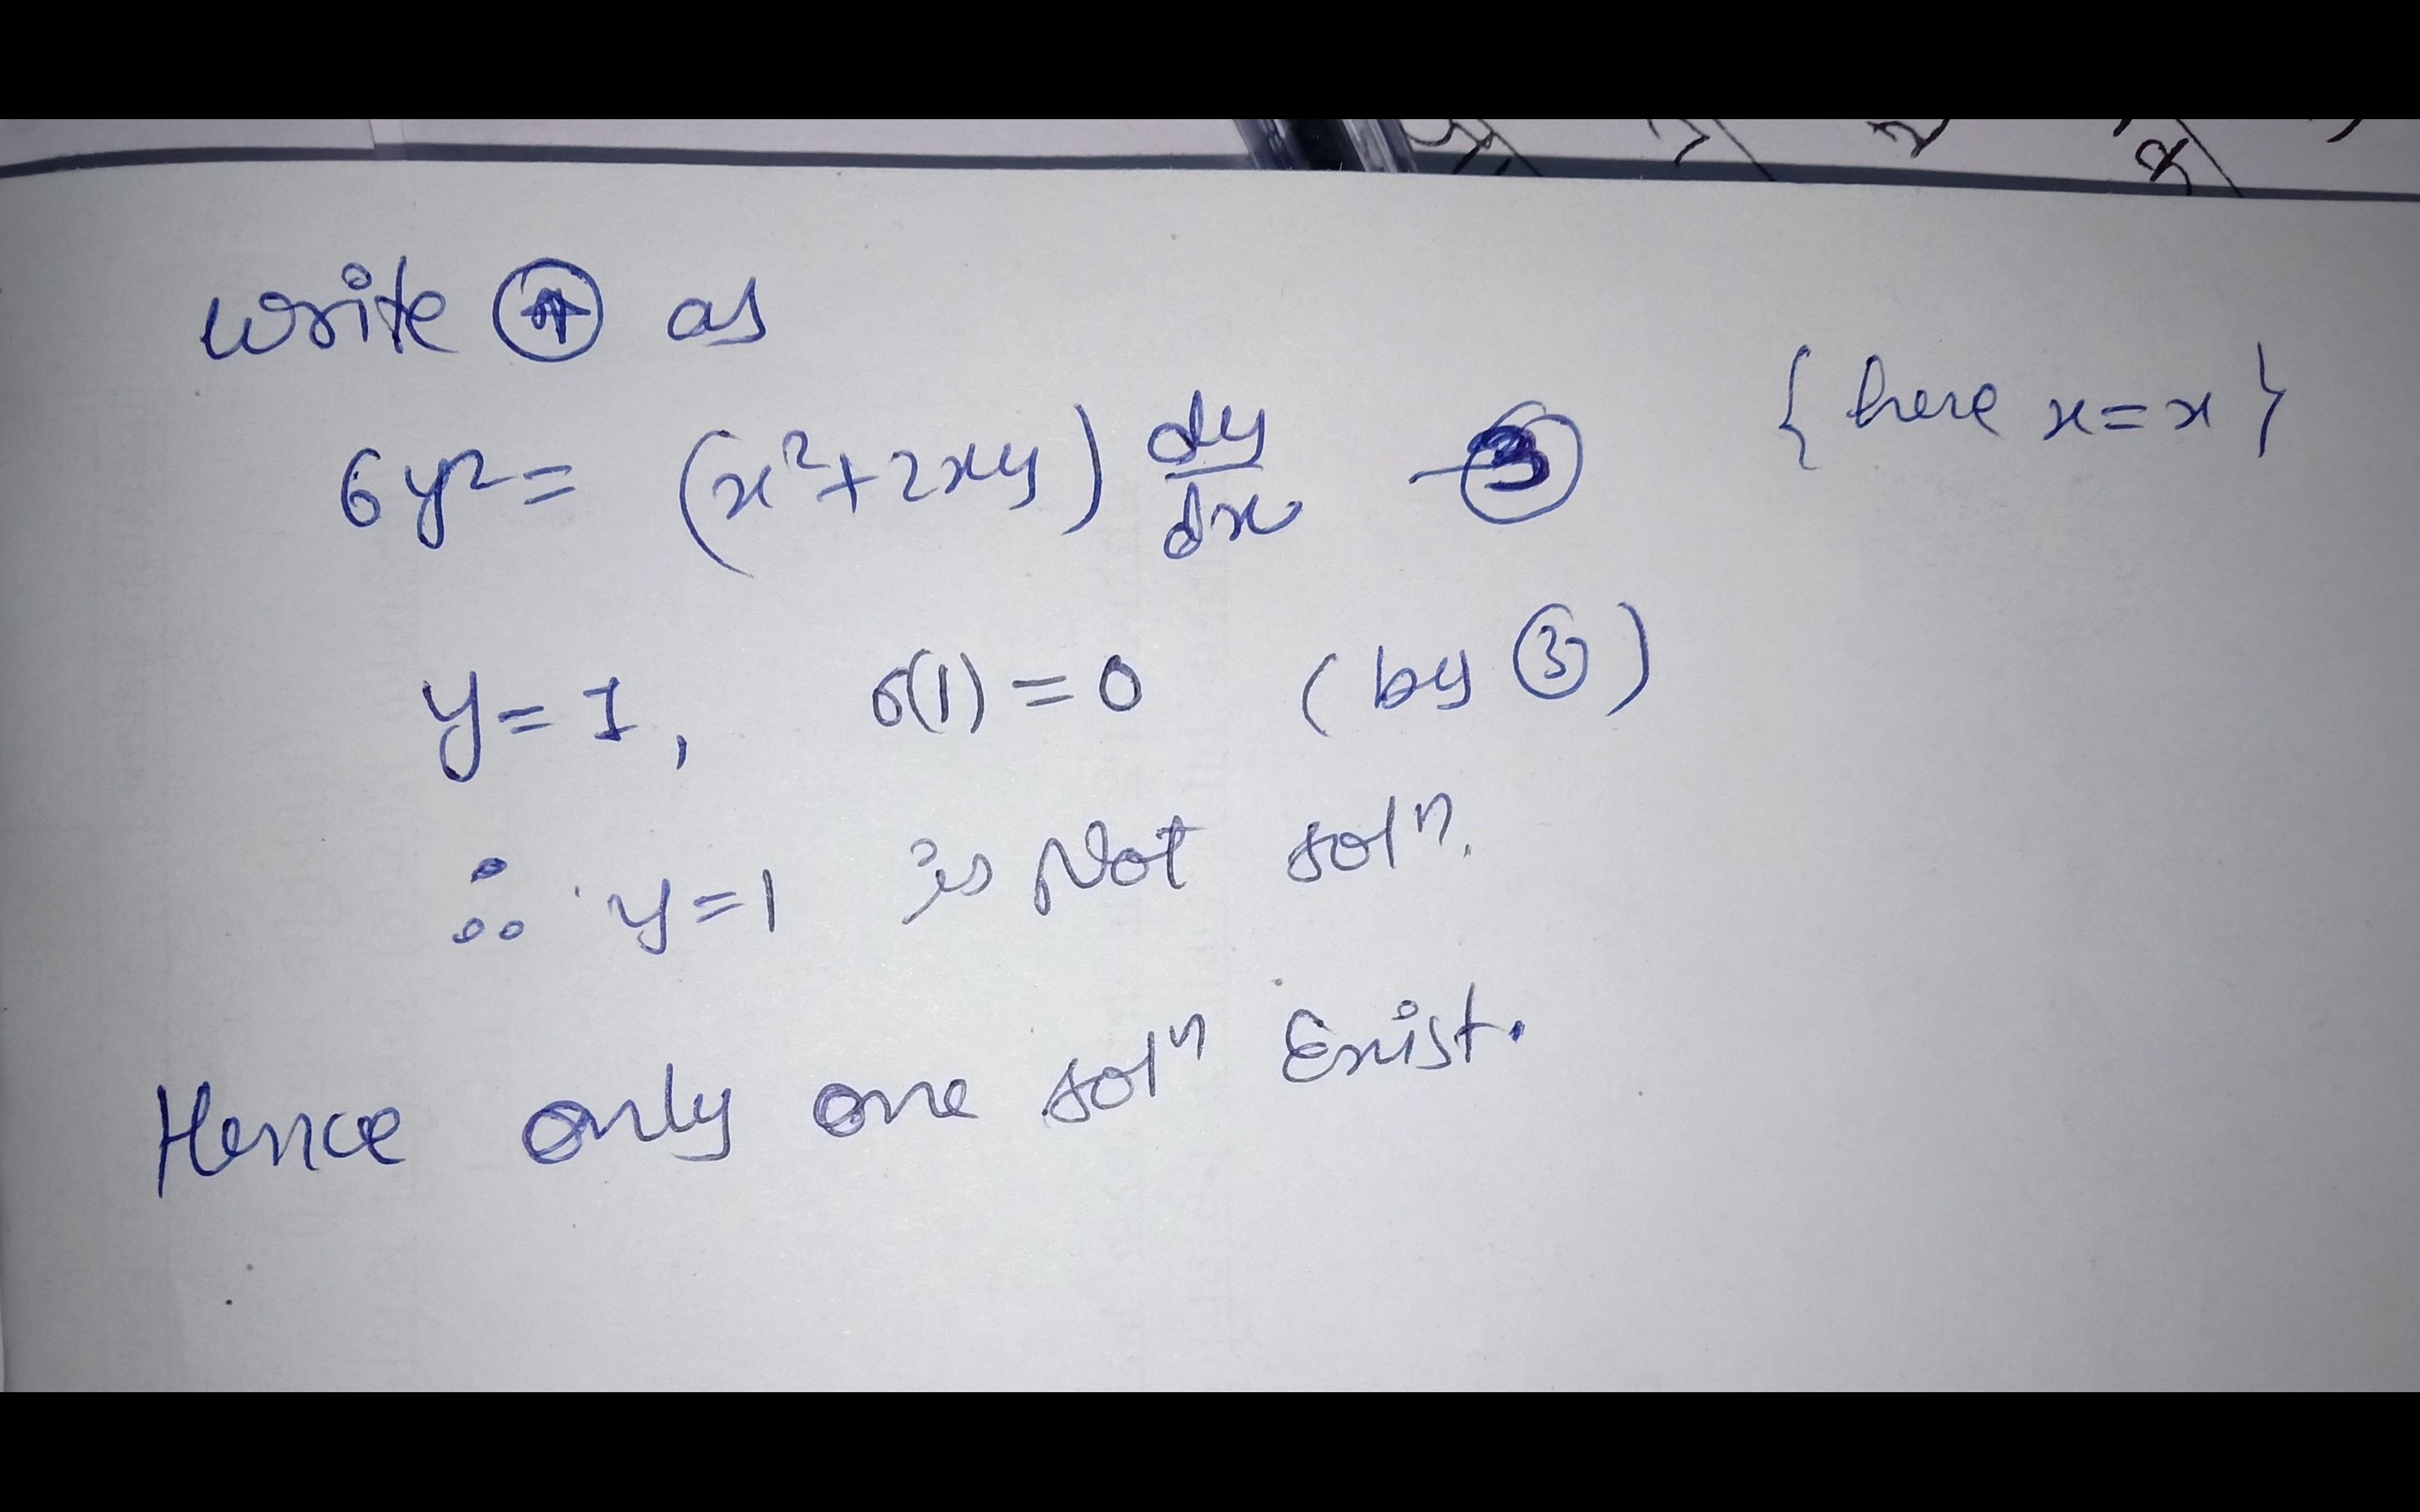 write ④ as
6y² = (x²+2xy) dy/dx —③ {here x=x}
y=1, 6(1)=0 (by ③)
∴ y=1 is Not solⁿ.
Hence only one solⁿ Exist.